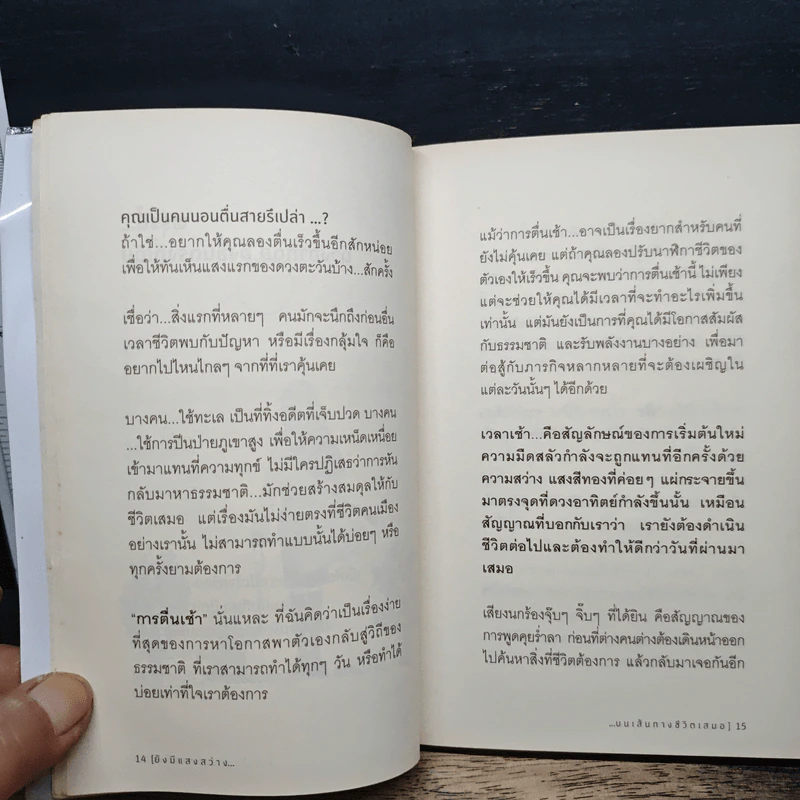 คุณเป็นคนนอนตื่นสายรึเปล่า ...?
ถ้าใช่...อยากให้คุณลองตื่นเร็วขึ้นอีกสักหน่อย
เพื่อให้ทันเห็นแสงแรกของดวงตะวันบ้าง...สักครั้ง
เชื่อว่า...สิ่งแรกที่หลายๆ คนมักจะนึกถึงก่อนอื่น
เวลาชีวิตพบกับปัญหา หรือมีเรื่องกลุ้มใจ ก็คือ
อยากไปไหนไกลๆ จากที่ที่เราคุ้นเคย
บางคน...ใช้ทะเล เป็นที่ทิ้งอดีตที่เจ็บปวด บางคน
...ใช้การปีนป่ายภูเขาสูง เพื่อให้ความเหน็ดเหนื่อย
เข้ามาแทนที่ความทุกข์ ไม่มีใครปฏิเสธว่าการหัน
กลับมาหาธรรมชาติ...มักช่วยสร้างสมดุลให้กับ
ชีวิตเสมอ แต่เรื่องมันไม่ง่ายตรงที่ชีวิตคนเมือง
อย่างเรานั้น ไม่สามารถทำแบบนั้นได้บ่อยๆ หรือ
ทุกครั้งยามต้องการ
"การตื่นเช้า" นั่นแหละ ที่ฉันคิดว่าเป็นเรื่องง่าย
ที่สุดของการหาโอกาสพาตัวเองกลับสู่วิถีของ
ธรรมชาติ ที่เราสามารถทำได้ทุกๆ วัน หรือทำได้
บ่อยเท่าที่ใจเราต้องการ
14 [ยังมีแสงสว่าง...
แม้ว่าการตื่นเช้า...อาจเป็นเรื่องยากสำหรับคนที่
ยังไม่คุ้นเคย แต่ถ้าคุณลองปรับนาฬิกาชีวิตของ
ตัวเองให้เร็วขึ้น คุณจะพบว่าการตื่นเช้านี้ ไม่เพียง
แต่จะช่วยให้คุณได้มีเวลาที่จะทำอะไรเพิ่มขึ้น
เท่านั้น แต่มันยังเป็นการที่คุณได้มีโอกาสสัมผัส
กับธรรมชาติ และรับพลังงานบางอย่าง เพื่อมา
ต่อสู้กับภารกิจหลากหลายที่จะต้องเผชิญใน
แต่ละวันนั้นๆ ได้อีกด้วย
เวลาเช้า...คือสัญลักษณ์ของการเริ่มต้นใหม่
ความมืดสลัวกำลังจะถูกแทนที่อีกครั้งด้วย
ความสว่าง แสงสีทองที่ค่อยๆ แผ่กระจายขึ้น
มาตรงจุดที่ดวงอาทิตย์กำลังขึ้นนั้น เหมือน
สัญญาณที่บอกกับเราว่า เรายังต้องดำเนิน
ชีวิตต่อไปและต้องทำให้ดีกว่าวันที่ผ่านมา
เสมอ
เสียงนกร้องจุ๊บๆ จิ๊บๆ ที่ได้ยิน คือสัญญาณของ
การพูดคุยร่ำลา ก่อนที่ต่างคนต่างต้องเดินหน้าออก
ไปค้นหาสิ่งที่ชีวิตต้องการ แล้วกลับมาเจอกันอีก
...บนเส้นทางชีวิตเสมอ] 15